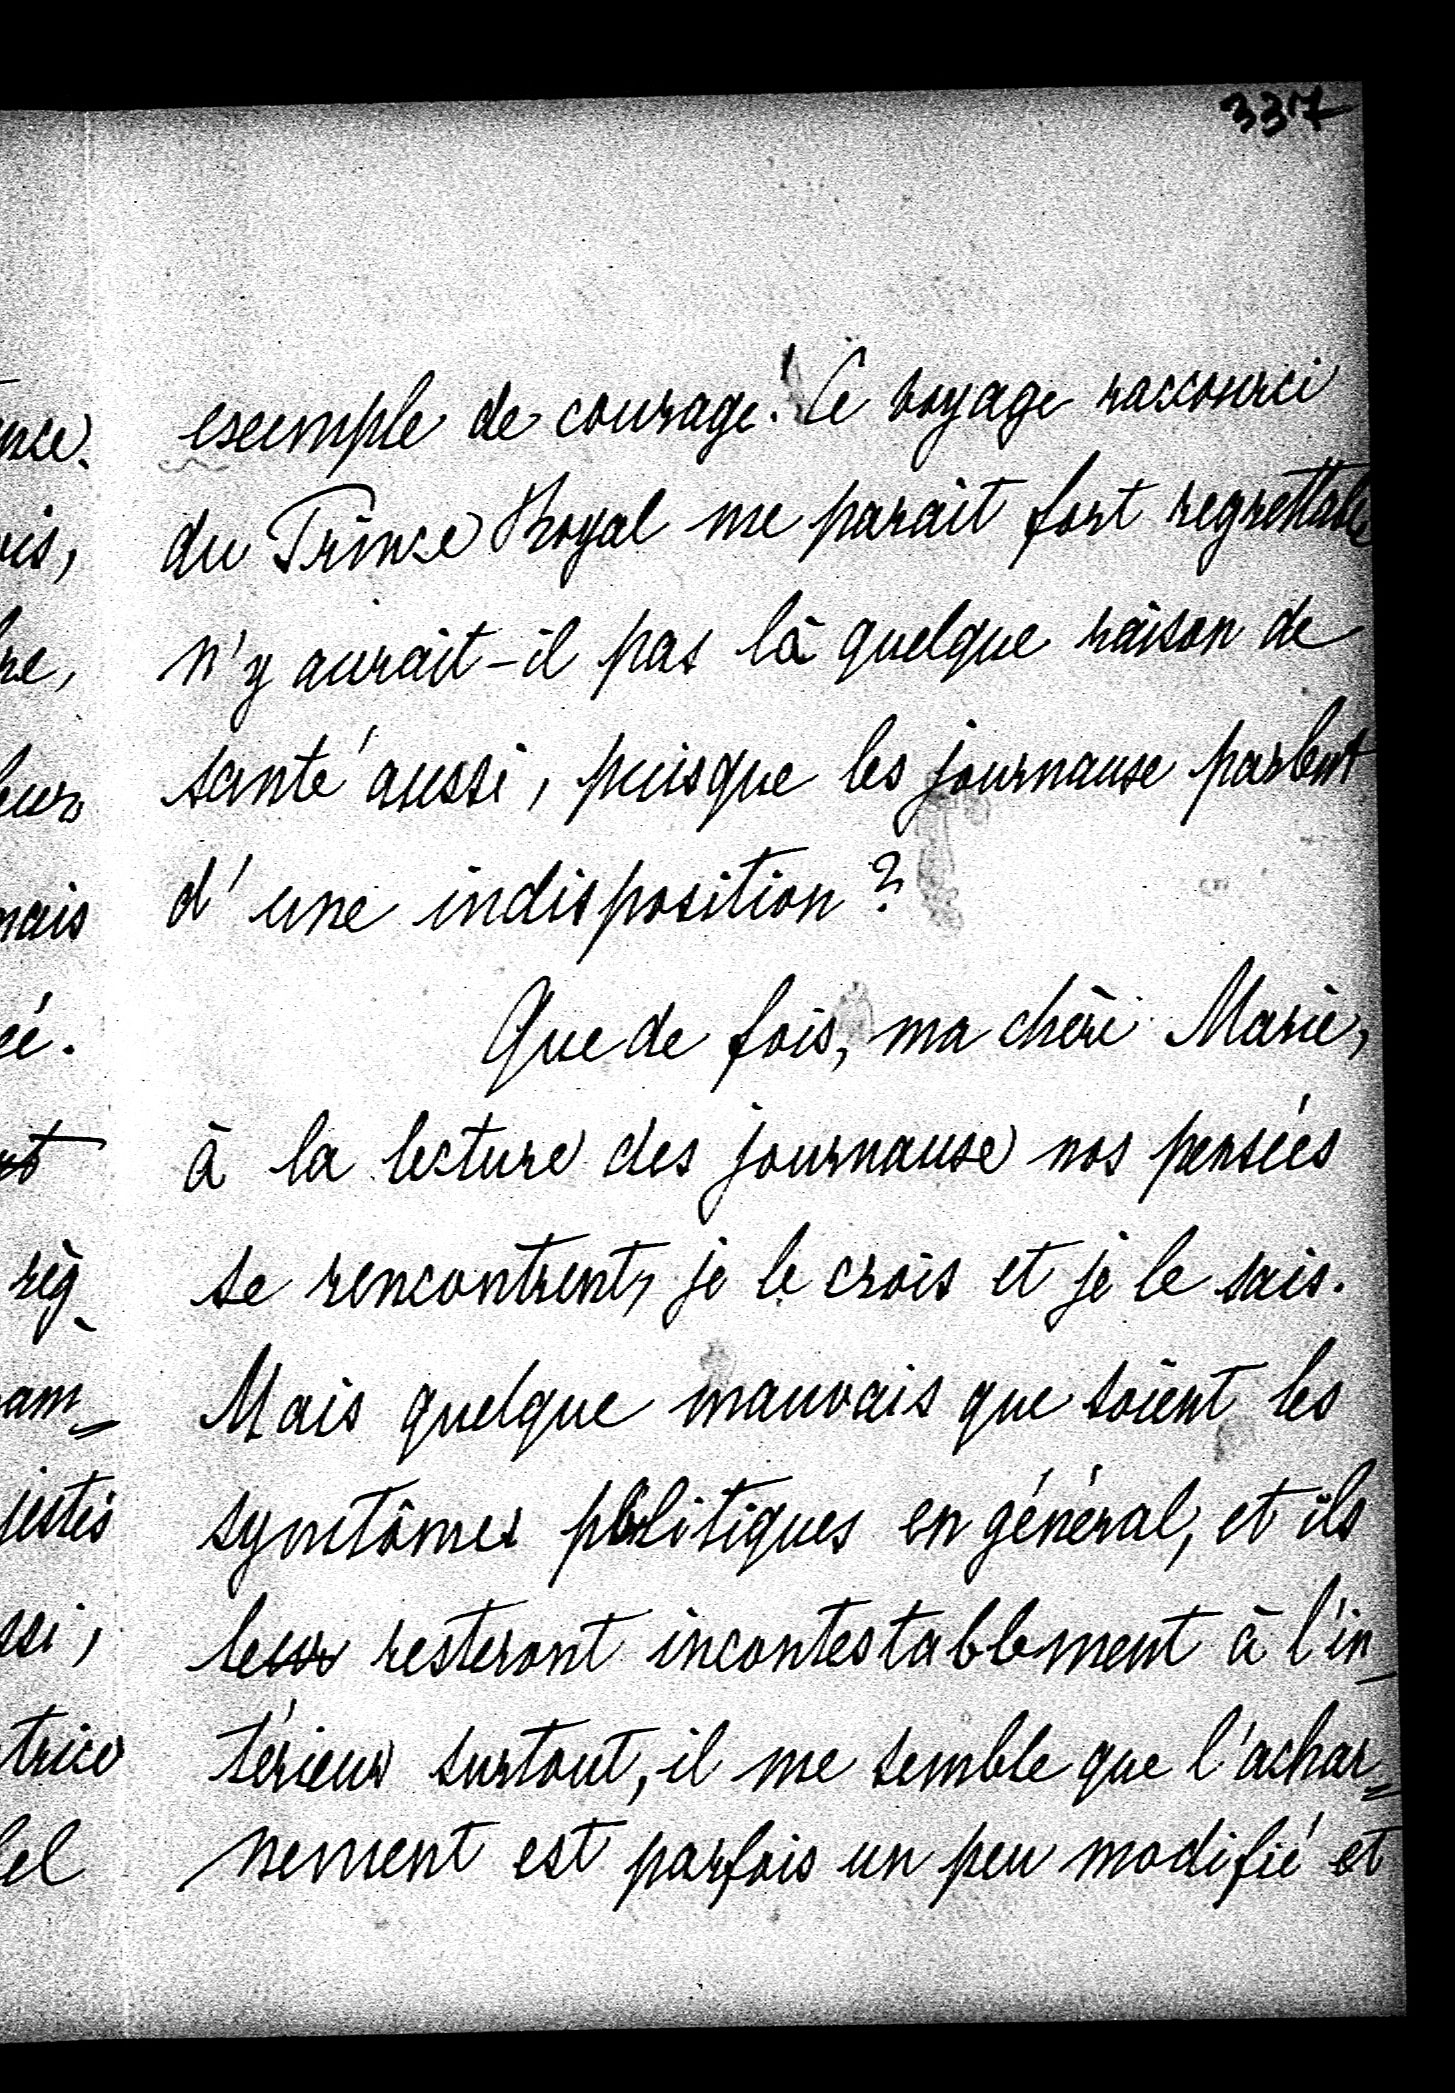 337
exemple de courage! Ce voyage raccourci
du Prince Royal me parait fort regrettable
n'y aurait-il pas là quelque raison de
santé aussi, puisque les journaux parlent
d'une indisposition?
Que de fois, ma chère Marie,
à la lecture des journaux nos pensées
se rencontrent, je le crois et je le sais.
Mais quelque mauvais que soient les
symtômes politiques en général, et ils
le resteront incontestablement à l'in-
térieur surtout, il me semble que l'achar=
nement est parfois un peu modifié et